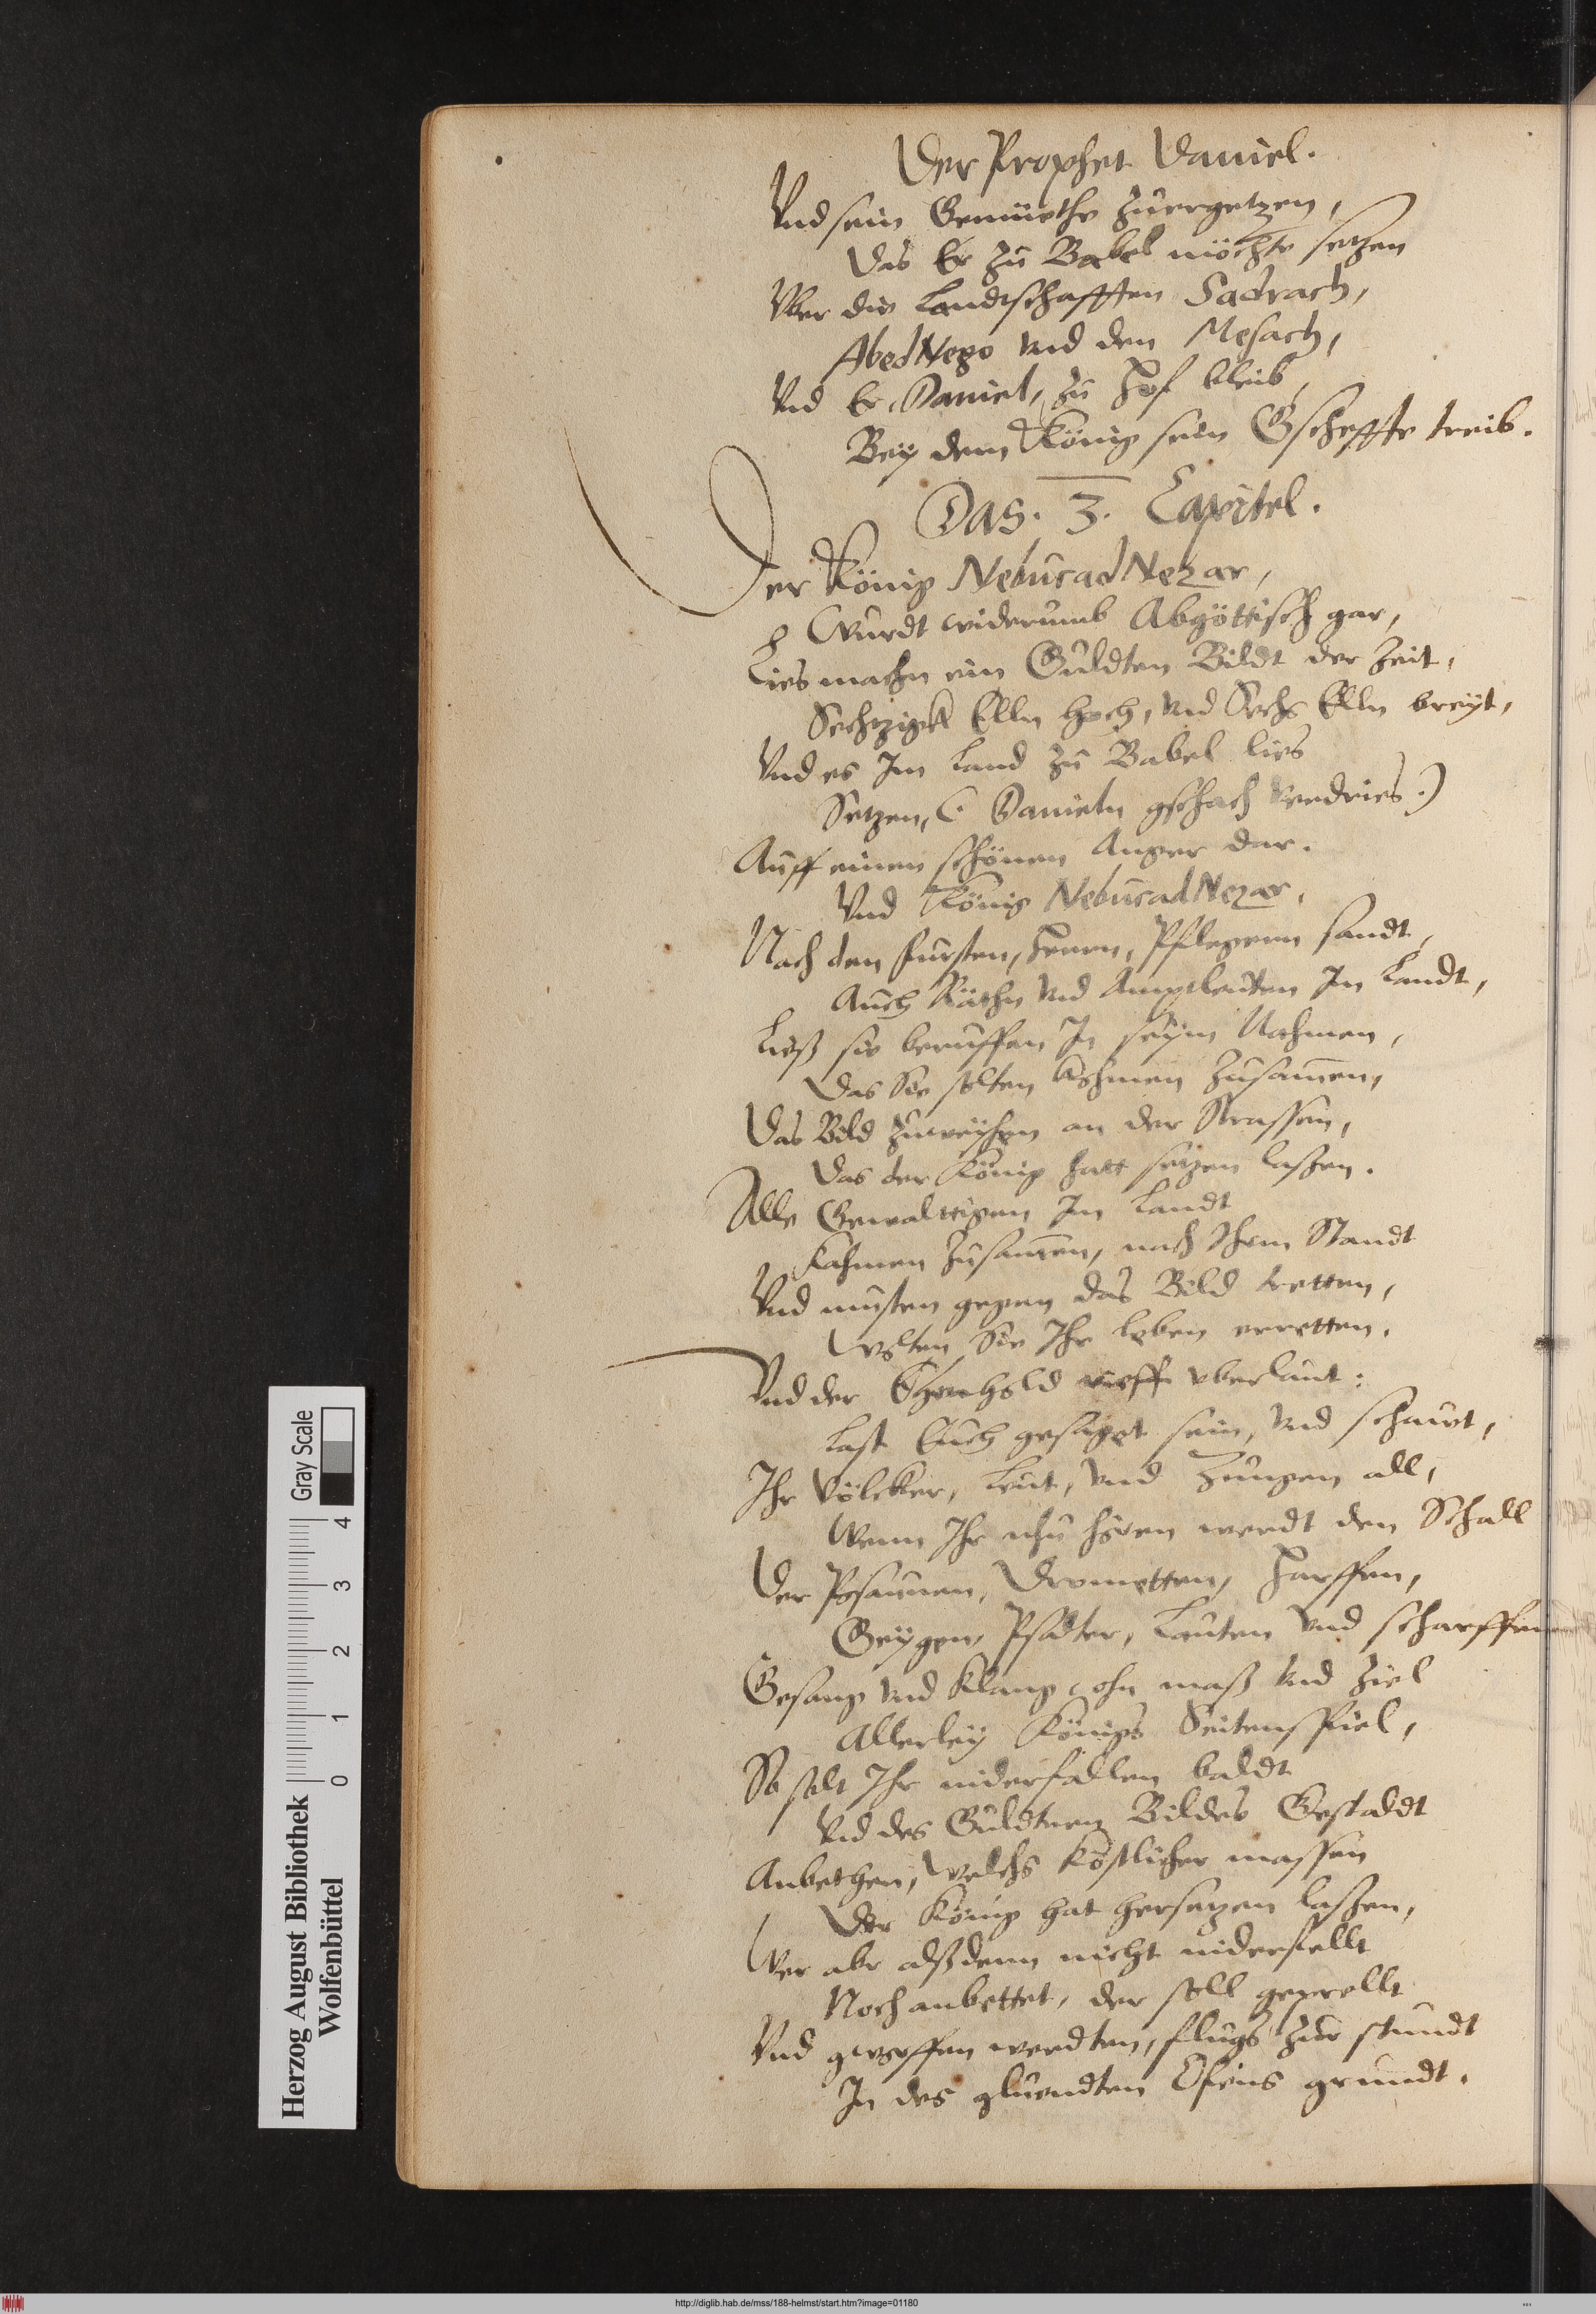 Der Prophet Daniel.
Vnd sein Gemüethe zuergetzen,
Das Er zu Babel möchte setzen
Vber die Landtschafften Sadrach,
AbedNego vnd den Mesach,
Vnd Er, Daniel, zu Hof bleib,
Bey dem König sein Gscheffte treib.
Das. 3. Capitel.
Der König NebucadNezar,
Wurdt widerumb Abgöttisch gar,
Lies machn ein Guldten Bildt der Zeit,
Sechtzigk Elln hoch, vnd Sechs Elln breyt,
Vnd es Im Land zu Babel lies
Setzen, (. Danieln gschach verdries.)
Auff einen schönen Anger dar.
Vnd König NebucadNezar,
Nach den Fursten, Herrn, Pflegern sandt,
Auch Räthn vnd Amptleuten Im Landt,
Ließ sie beruffen In seym Nahmen,
Das Sie solten kohmen Zusamen,
Das Bild Zuweyhen an der Strassen,
Das der König hatt setzen laßen.
Alle Gewaltigen Im Landt
Kahmen Zusamen, nach Ihrm Standt
Vnd musten gegen das Bild tretten,
Wolten Sie Ihr leben erretten.
Vnd der Ehrnhold rieff vberlaut:
Last Euch gesaget sein, vnd schawt,
Ihr Völcker, Leut, vnd Zungen all,
Wenn Ihr nhu hören werdt den Schall
Der Posaunen, Drometten, Harffen,
Geygen, Psalter, Lauten vnd scharffen
Gesang vnd Klang, ohn maß vnd Ziel
Allerley Königs Seitenspiel,
So solt Ihr niderfallen baldt
Vnd des Guldtnen Bildes Gestaldt
Anbethen, welchs köstlicher massen
Der König hat hersetzen laßen,
Wer abr alßdenn nicht niderfellt
Noch anbettet, der soll geprellt
Vnd gworffen werdten, flugs zur stundt
In des gluendten Ofens grundt.
Herzog August Bibliothek
Wolfenbüttel
0 1 2 3 4
Gray Scale
http://diglib.hab.de/mss/188-helmst/start.htm?image=01180